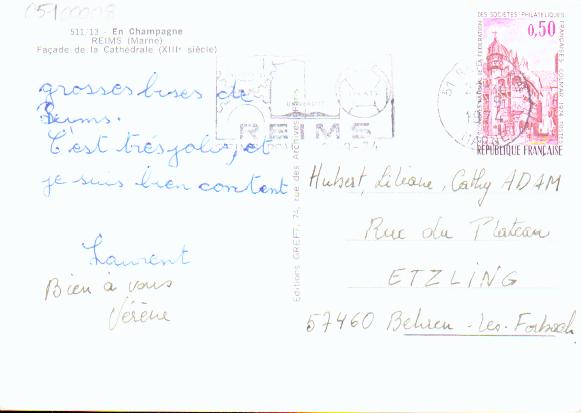 05100008
511/13 - En Champagne
REIMS (Marne)
Façade de la Cathédrale (XIIIe siècle)
grosses bises de
Reims.
C'est très joli, et
je suis bien content
Laurent
Bien à vous
Vérène
Editions GREFF, 74, rue des Archives, Paris
REIMS
0,50
REPUBLIQUE FRANÇAISE
Hubert, Liliane, Cathy ADAM
Rue du Plateau
ETZLING
57460 Behren-les-Forbach